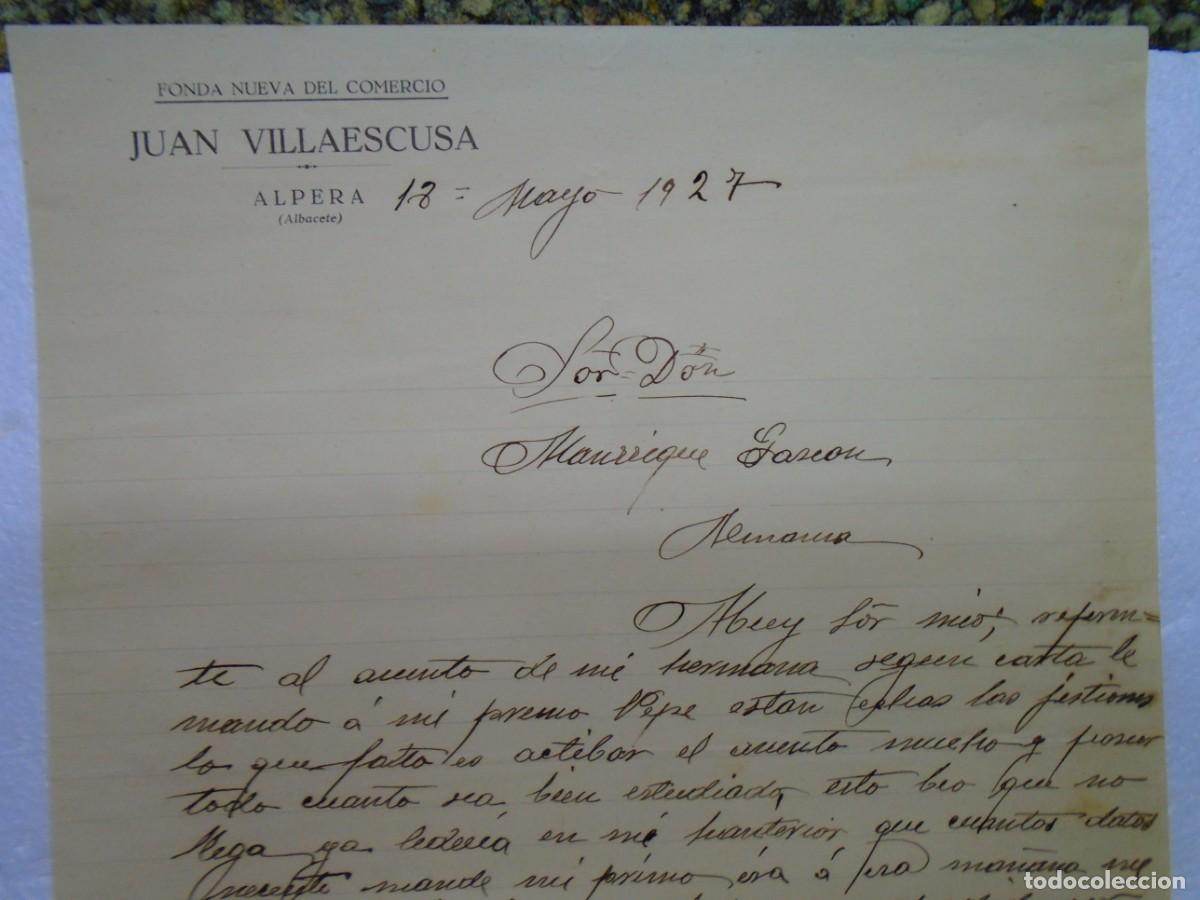 FONDA NUEVA DEL COMERCIO
JUAN VILLAESCUSA
ALPERA
(Albacete)
18 = Mayo 1927
Sor = Dōn
Manrrique Gascon
Muy Sōr mio; referen=
te al asunto de mi hermana segun carta le
mando á mi primo Pepe estan echas las jestiones
lo que falta es actibar el asunto mucho y poner
todo cuanto sea bien estudiado, esto beo que no
llega ya lederia en mi anterior que cuantos datos
necesite mande mi primo irá á mañana me
todocoleccion